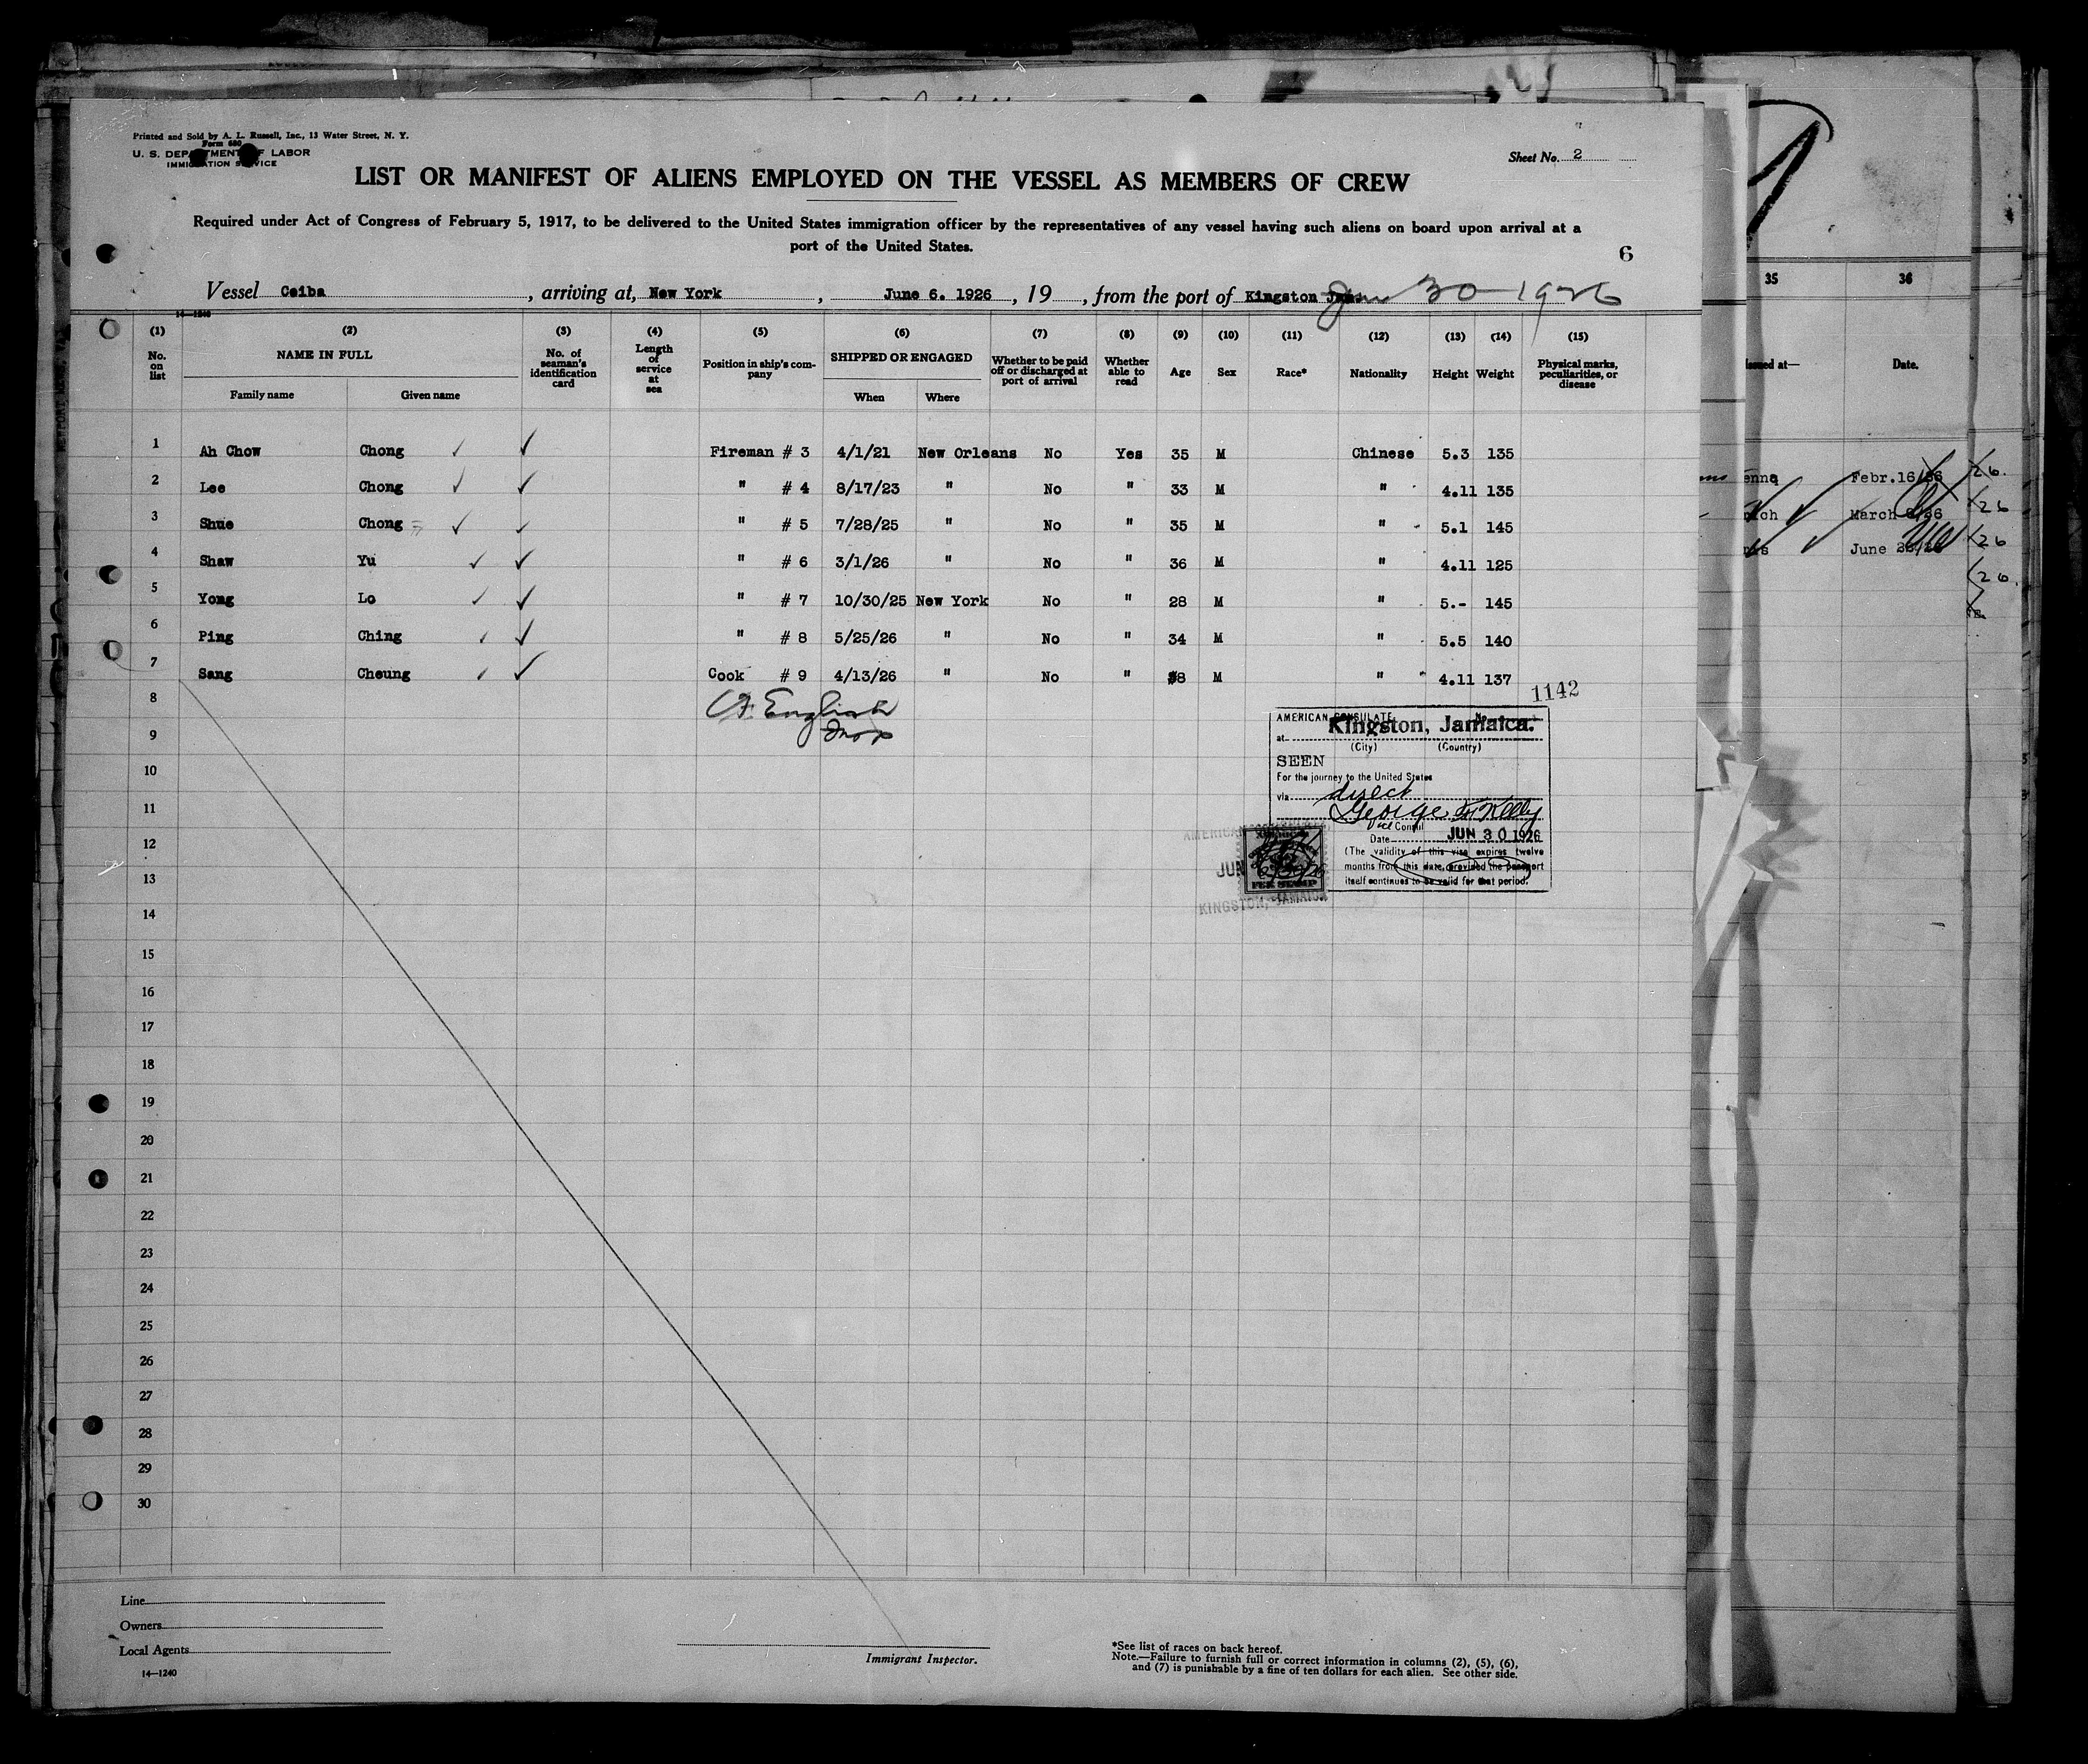 Printed and Sold by A. L. Russell, Inc., 13 Water Street, N. Y.
Form 680
U. S. DEPARTMENT OF LABOR
IMMIGRATION SERVICE
Sheet No. 2
LIST OR MANIFEST OF ALIENS EMPLOYED ON THE VESSEL AS MEMBERS OF CREW
Required under Act of Congress of February 5, 1917, to be delivered to the United States immigration officer by the representatives of any vessel having such aliens on board upon arrival at a
port of the United States.
6
Vessel Ceiba, arriving at, New York, June 6. 1926, 19, from the port of Kingston Jam. June 30 1926
14-1240
(1) (2) (3) (4) (5) (6) (7) (8) (9) (10) (11) (12) (13) (14) (15)
No. on list NAME IN FULL No. of seaman's identification card Length of service at sea Position in ship's company SHIPPED OR ENGAGED Whether to be paid off or discharged at port of arrival Whether able to read Age Sex Race* Nationality Height Weight Physical marks, peculiarities, or disease
Family name Given name When Where
1 Ah Chow Chong ✓ ✓ Fireman # 3 4/1/21 New Orleans No Yes 35 M Chinese 5.3 135
2 Lee Chong ✓ ✓ " # 4 8/17/23 " No " 33 M " 4.11 135
3 Shue Chong ✓ ✓ " # 5 7/28/25 " No " 35 M " 5.1 145
4 Shaw Yu ✓ ✓ " # 6 3/1/26 " No " 36 M " 4.11 125
5 Yong Lo ✓ ✓ " # 7 10/30/25 New York No " 28 M " 5.- 145
6 Ping Ching ✓ ✓ " # 8 5/25/26 " No " 34 M " 5.5 140
7 Sang Cheung ✓ ✓ Cook # 9 4/13/26 " No " 8 M " 4.11 137
8
English
9
Insp
10
11
12
13
14
15
16
17
18
19
20
21
22
23
24
25
26
27
28
29
30
1142
AMERICAN CONSULATE
at Kingston, Jamaica.
(City) (Country)
SEEN
For the journey to the United States
via direct
George Kelly
Vice Consul
Date JUN 30 1926
(The validity of this visa expires twelve
months from this date, provided the passport
itself continues to be valid for that period.
AMERICAN
JUN
FEE STAMP
KINGSTON, JAMAICA
Line
Owners
Local Agents
14-1240
Immigrant Inspector.
*See list of races on back hereof.
Note.—Failure to furnish full or correct information in columns (2), (5), (6),
and (7) is punishable by a fine of ten dollars for each alien. See other side.
35 36
Issued at— Date.
Febr.16/26
March
June
26.
26
26
26.